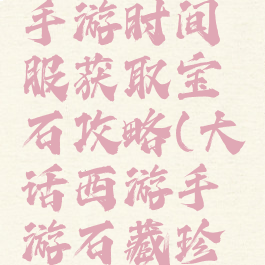 手游时间
服获取宝
石攻略(大
话西游手
游石藏珍